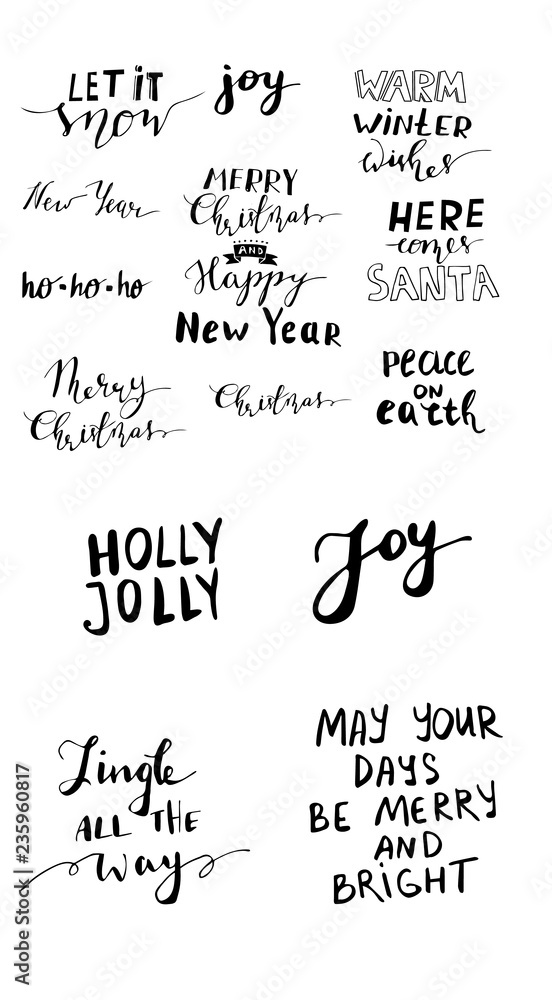 LET iT
snow
joy
WARM
WiNTER
wishes
New Year
MERRY
Christmas
AND
Happy
New Year
HERE
comes
SANTA
ho•ho•ho
Merry
Christmas
Christmas
peace
ON
earth
HOLLY
JOLLY
Joy
Jingle
ALL THE
way
MAY YOUR
DAYS
BE MERRY
AND
BRiGHT
Adobe Stock | #235960817
Adobe Stock